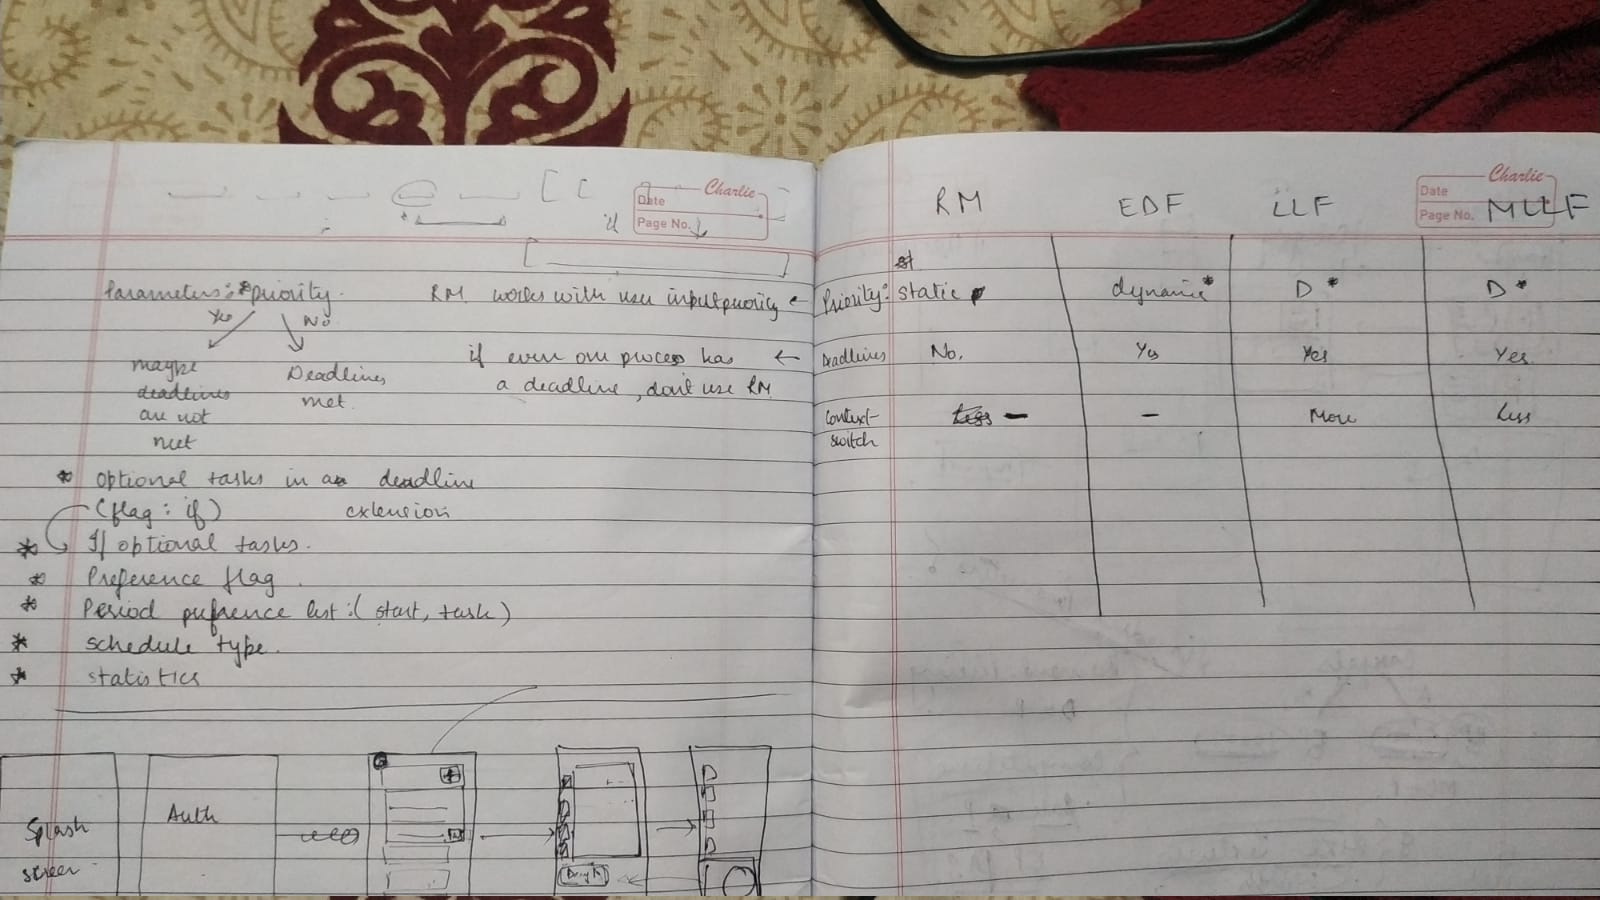 Charlie
Date
Page No.
Parameters: * priority.
Yes No.
maybe
deadlines
are not
met
Deadlines
met.
RM works with user input priority ←
if even one process has ←
a deadline, don't use RM
* optional tasks in a deadline
(flag: if) extension
* If optional tasks.
* Preference flag.
* Period prefrence list: (start, task)
* schedule type.
* statistics
Splash
screen
Auth
Charlie
Date
Page No.
RM EDF LLF MLLF
Priority: static dynamic* D * D *
Deadlines No. Yes Yes Yes.
Context- Less - - More Less
switch